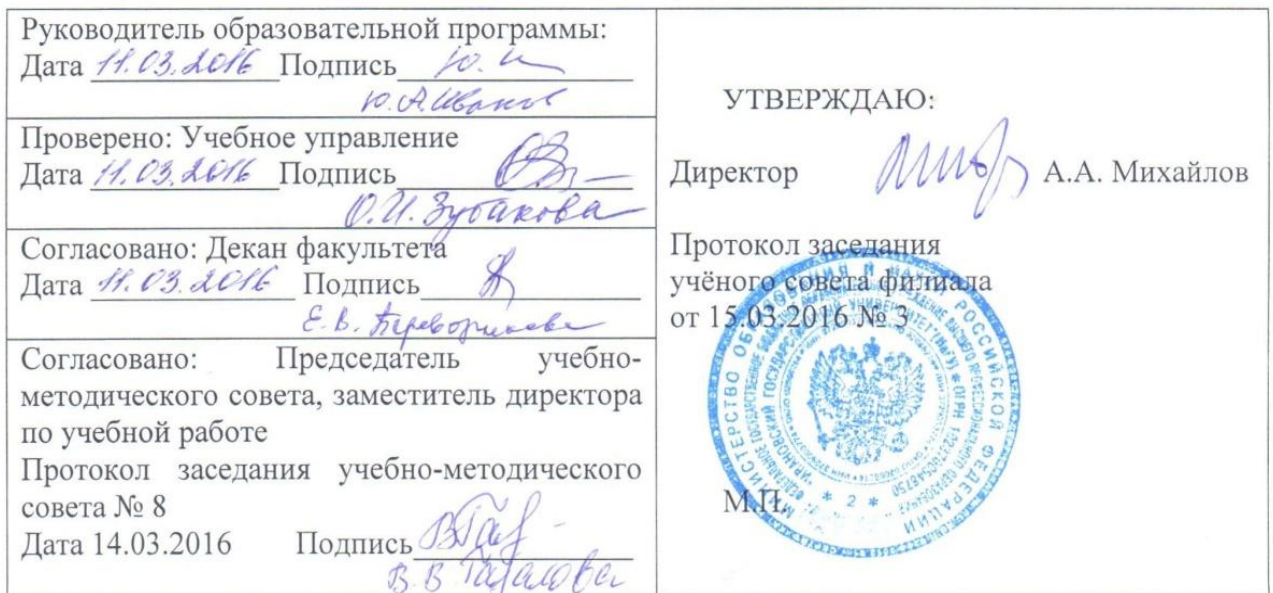 Руководитель образовательной программы:
Дата 11.03.2016 Подпись Ю. И
Ю.А.Иванов
Проверено: Учебное управление
Дата 11.03.2016 Подпись
О.И. Зубакова
Согласовано: Декан факультета
Дата 11.03.2016 Подпись
Е.В.
Согласовано: Председатель учебно-
методического совета, заместитель директора
по учебной работе
Протокол заседания учебно-методического
совета № 8
Дата 14.03.2016 Подпись
В.В.
УТВЕРЖДАЮ:
Директор А.А. Михайлов
Протокол заседания
учёного совета филиала
от 15.03.2016 № 3
МИНИСТЕРСТВО ОБРАЗОВАНИЯ И НАУКИ РОССИЙСКОЙ ФЕДЕРАЦИИ
* 2 *
М.П.